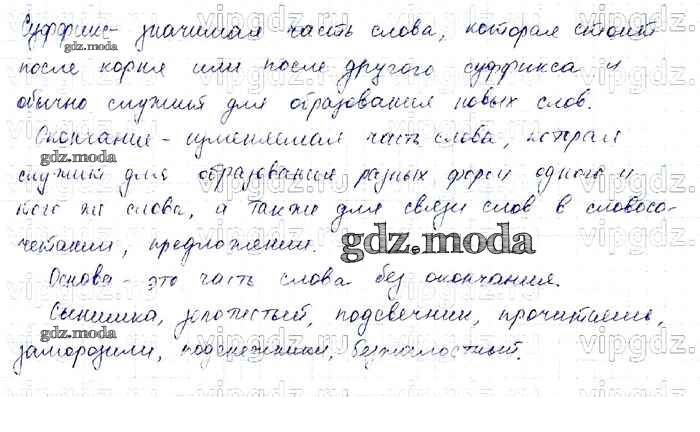 Суффикс- значимая часть слова, которая стоит
после корня или после другого суффикса и
обычно служит для образования новых слов.
Окончание - изменяемая часть слова, которая
служит для образования разных форм одного и
того же слова, а также для связи слов в словосо-
четании, предложении.
Основа - это часть слова без окончания.
Сынишка, золотистый, подсвечник, прочитаешь,
заморозили, подснежники, безжалостный.
gdz.moda
gdz.moda
gdz.moda
gdz.moda
gdz.moda
vipgdz.ru